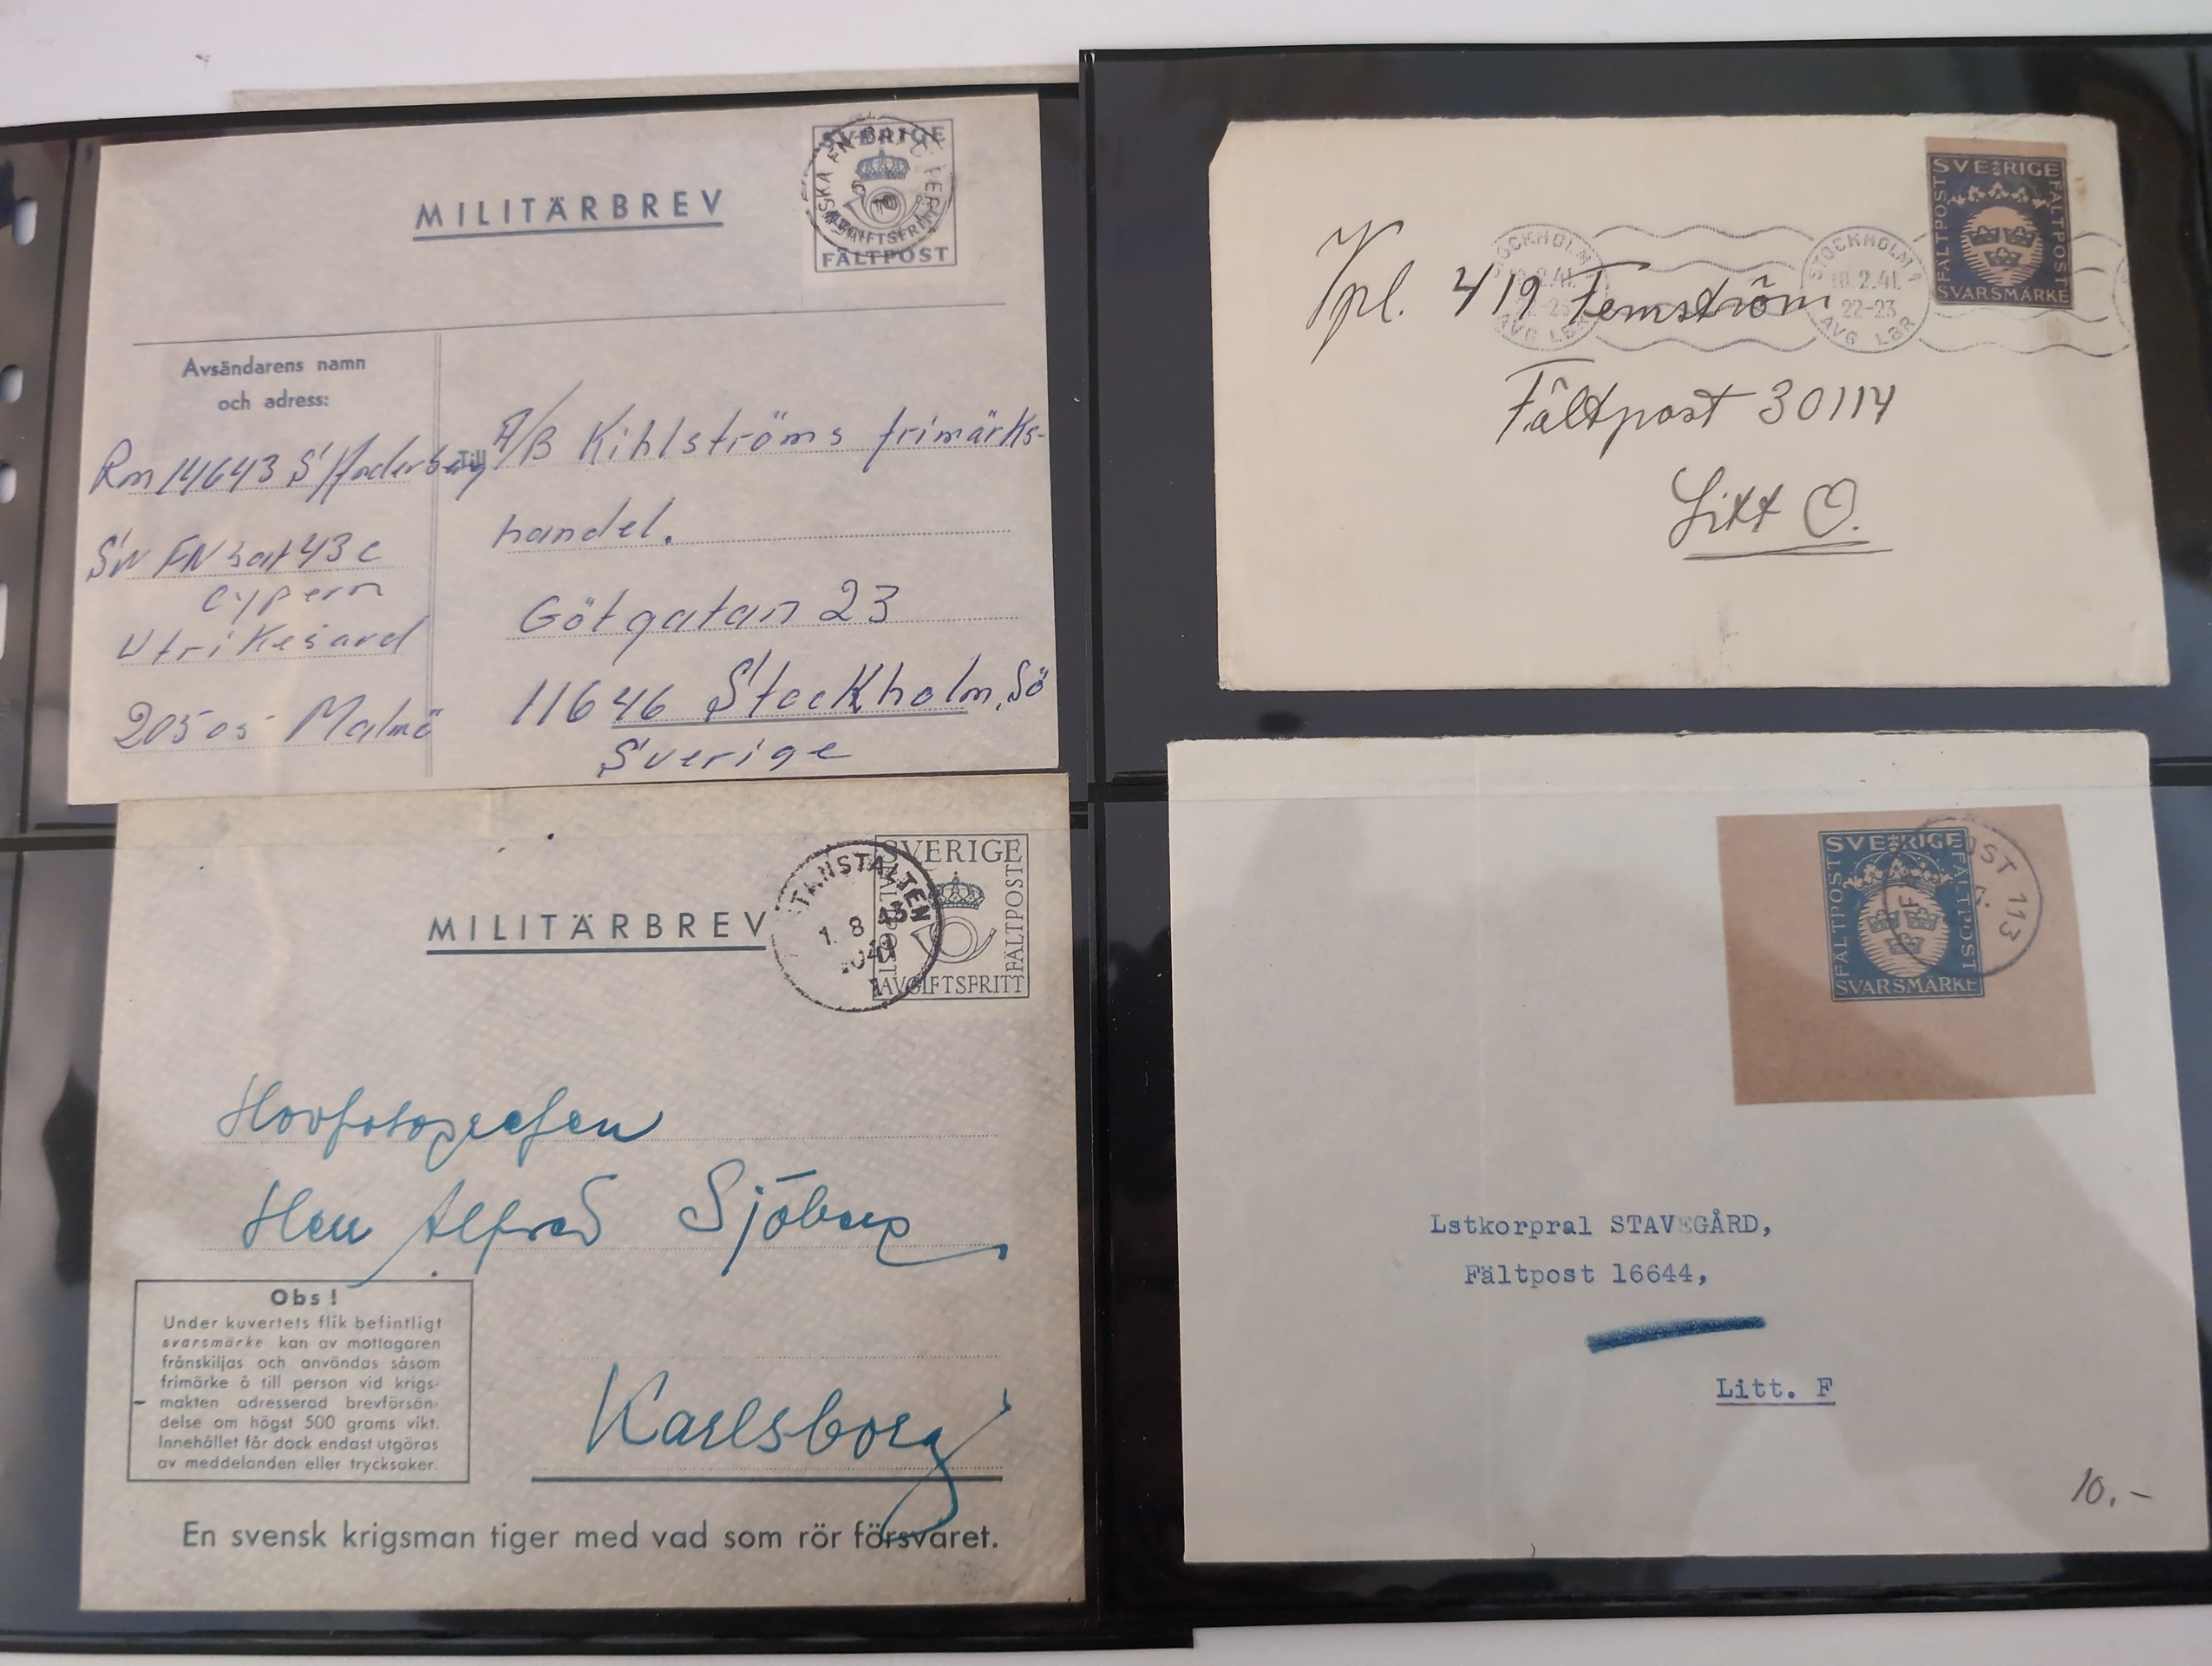 MILITÄRBREV
SVERIGE
AVGIFTSFRITT
FÄLTPOST
Avsändarens namn
och adress:
Rm 14643 S/Anderberg
SW FN bat 43 C
Cypern
Utrikesavd
205 05 Malmö
Till
A/B Kihlströms frimärks-
handel.
Götgatan 23
11646 Stockholm, Sö
Sverige
SVERIGE
FÄLTPOST
FÄLTPOST
SVARSMÄRKE
STOCKHOLM
10.2.41.
22-23
AVG LBR
STOCKHOLM 1
10.2.41.
22-23
AVG LBR
Vpl. 419 Femström
Fältpost 30114
Litt O.
MILITÄRBREV
TANSTALTEN
1. 8 43
SVERIGE
FÄLTPOST
FÄLTPOST
AVGIFTSFRITT
Hovfotografen
Herr Alfred Sjöberg
Obs!
Under kuvertets flik befintligt
svarsmärke kan av mottagaren
frånskiljas och användas såsom
frimärke å till person vid krigs-
makten adresserad brevförsän-
delse om högst 500 grams vikt.
Innehållet får dock endast utgöras
av meddelanden eller trycksaker.
Karlsborg
En svensk krigsman tiger med vad som rör försvaret.
SVERIGE
FÄLTPOST
FÄLTPOST
SVARSMÄRKE
ST 113
Lstkorpral STAVEGÅRD,
Fältpost 16644,
Litt. F
10.-